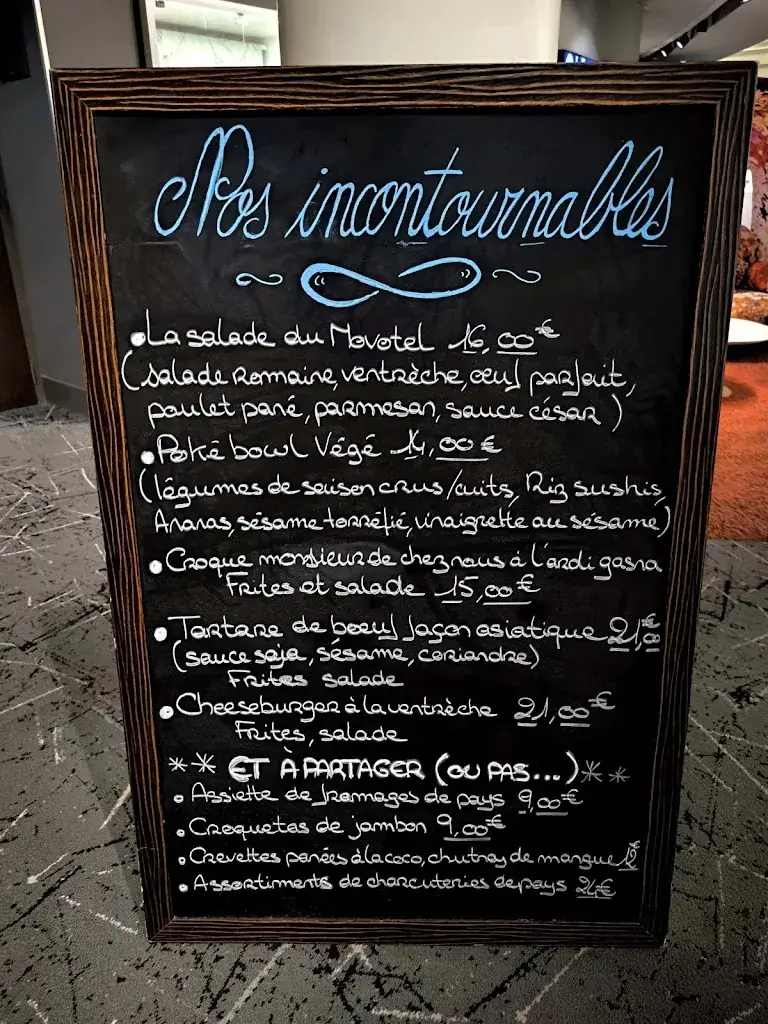 Nos incontournables
• La salade du Novotel 16,00€
(salade romaine, ventrèche, œuf parfait,
poulet pané, parmesan, sauce césar)
• Poké bowl Végé 14,00€
(légumes de saison crus/cuits, Riz sushis,
Ananas, sésame torréfié, vinaigrette au sésame)
• Croque monsieur de chez nous à l'ardi gasna
Frites et salade 15,00€
• Tartare de boeuf façon asiatique 21,00€
(sauce soja, sésame, coriandre)
Frites salade
• Cheeseburger à la ventrèche 21,00€
Frites, salade
** ET À PARTAGER (OU PAS...) **
• Assiette de fromages de pays 9,00€
• Croquetas de jambon 9,00€
• Crevettes panées à la coco, chutney de mangue 12€
• Assortiments de charcuteries de pays